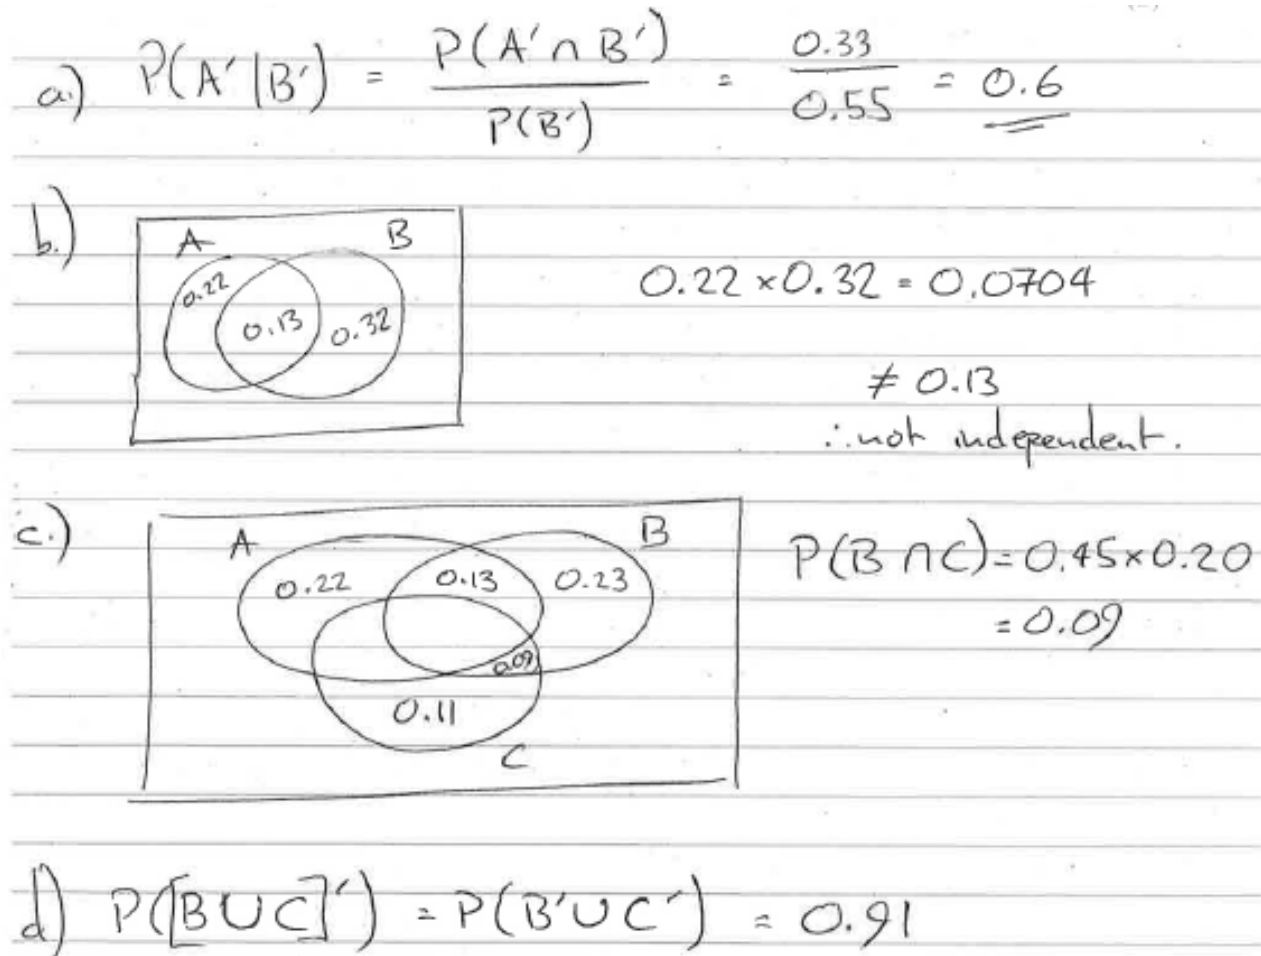 a.) P(A'|B') = P(A' ∩ B') / P(B') = 0.33 / 0.55 = 0.6
b.)
A B
0.22 0.13 0.32
0.22 × 0.32 = 0.0704
≠ 0.13
∴ not independent.
c.)
A B
0.22 0.13 0.23
0.09
0.11
C
P(B ∩ C) = 0.45 × 0.20
= 0.09
d) P([B ∪ C]') = P(B' ∪ C') = 0.91